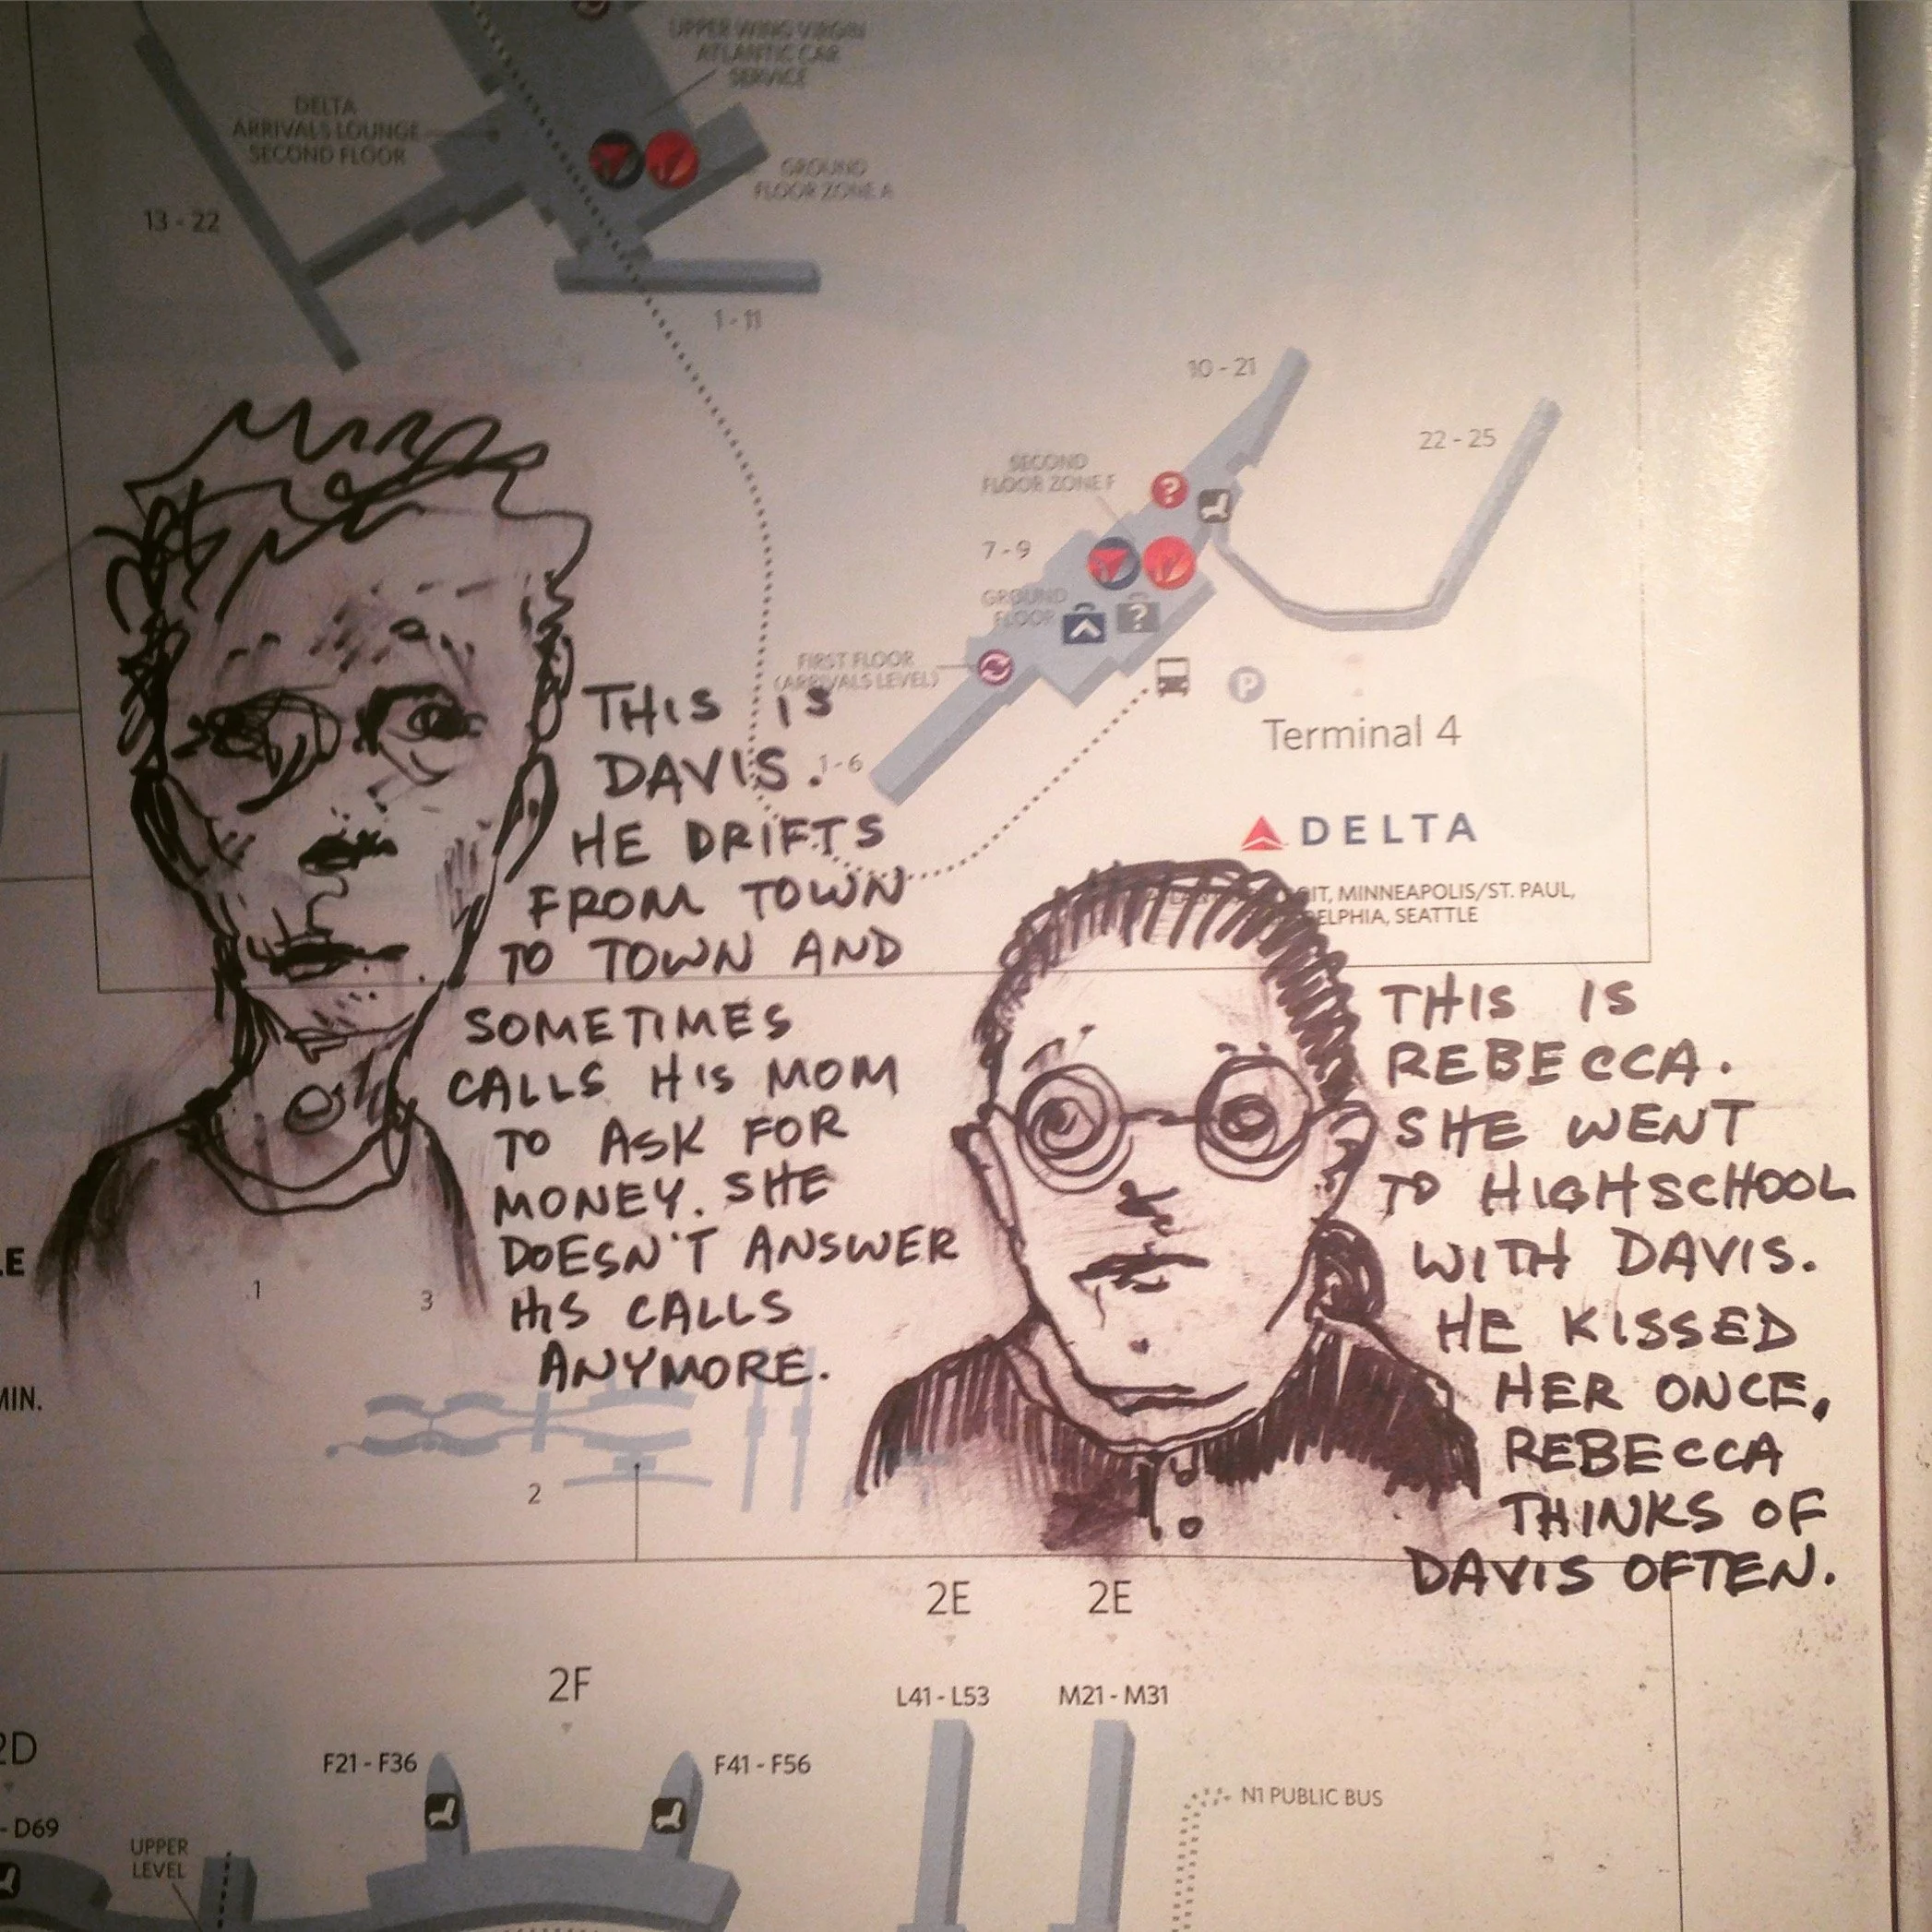 UPPER WING VIRGIN
ATLANTIC CAR
SERVICE
DELTA
ARRIVALS LOUNGE
SECOND FLOOR
GROUND
FLOOR ZONE A
13 - 22
1 - 11
10 - 21
22 - 25
SECOND
FLOOR ZONE F
7 - 9
GROUND
FLOOR
FIRST FLOOR
(ARRIVALS LEVEL)
1-6
P
Terminal 4
DELTA
IT, MINNEAPOLIS/ST. PAUL,
ELPHIA, SEATTLE
THIS IS
DAVIS.
HE DRIFTS
FROM TOWN
TO TOWN AND
SOMETIMES
CALLS HIS MOM
TO ASK FOR
MONEY. SHE
DOESN'T ANSWER
HIS CALLS
ANYMORE.
THIS IS
REBECCA.
SHE WENT
TO HIGHSCHOOL
WITH DAVIS.
HE KISSED
HER ONCE,
REBECCA
THINKS OF
DAVIS OFTEN.
LE
1
3
MIN.
2
2E
2E
2F
L41 - L53
M21 - M31
2D
F21 - F36
F41 - F56
N1 PUBLIC BUS
- D69
UPPER
LEVEL